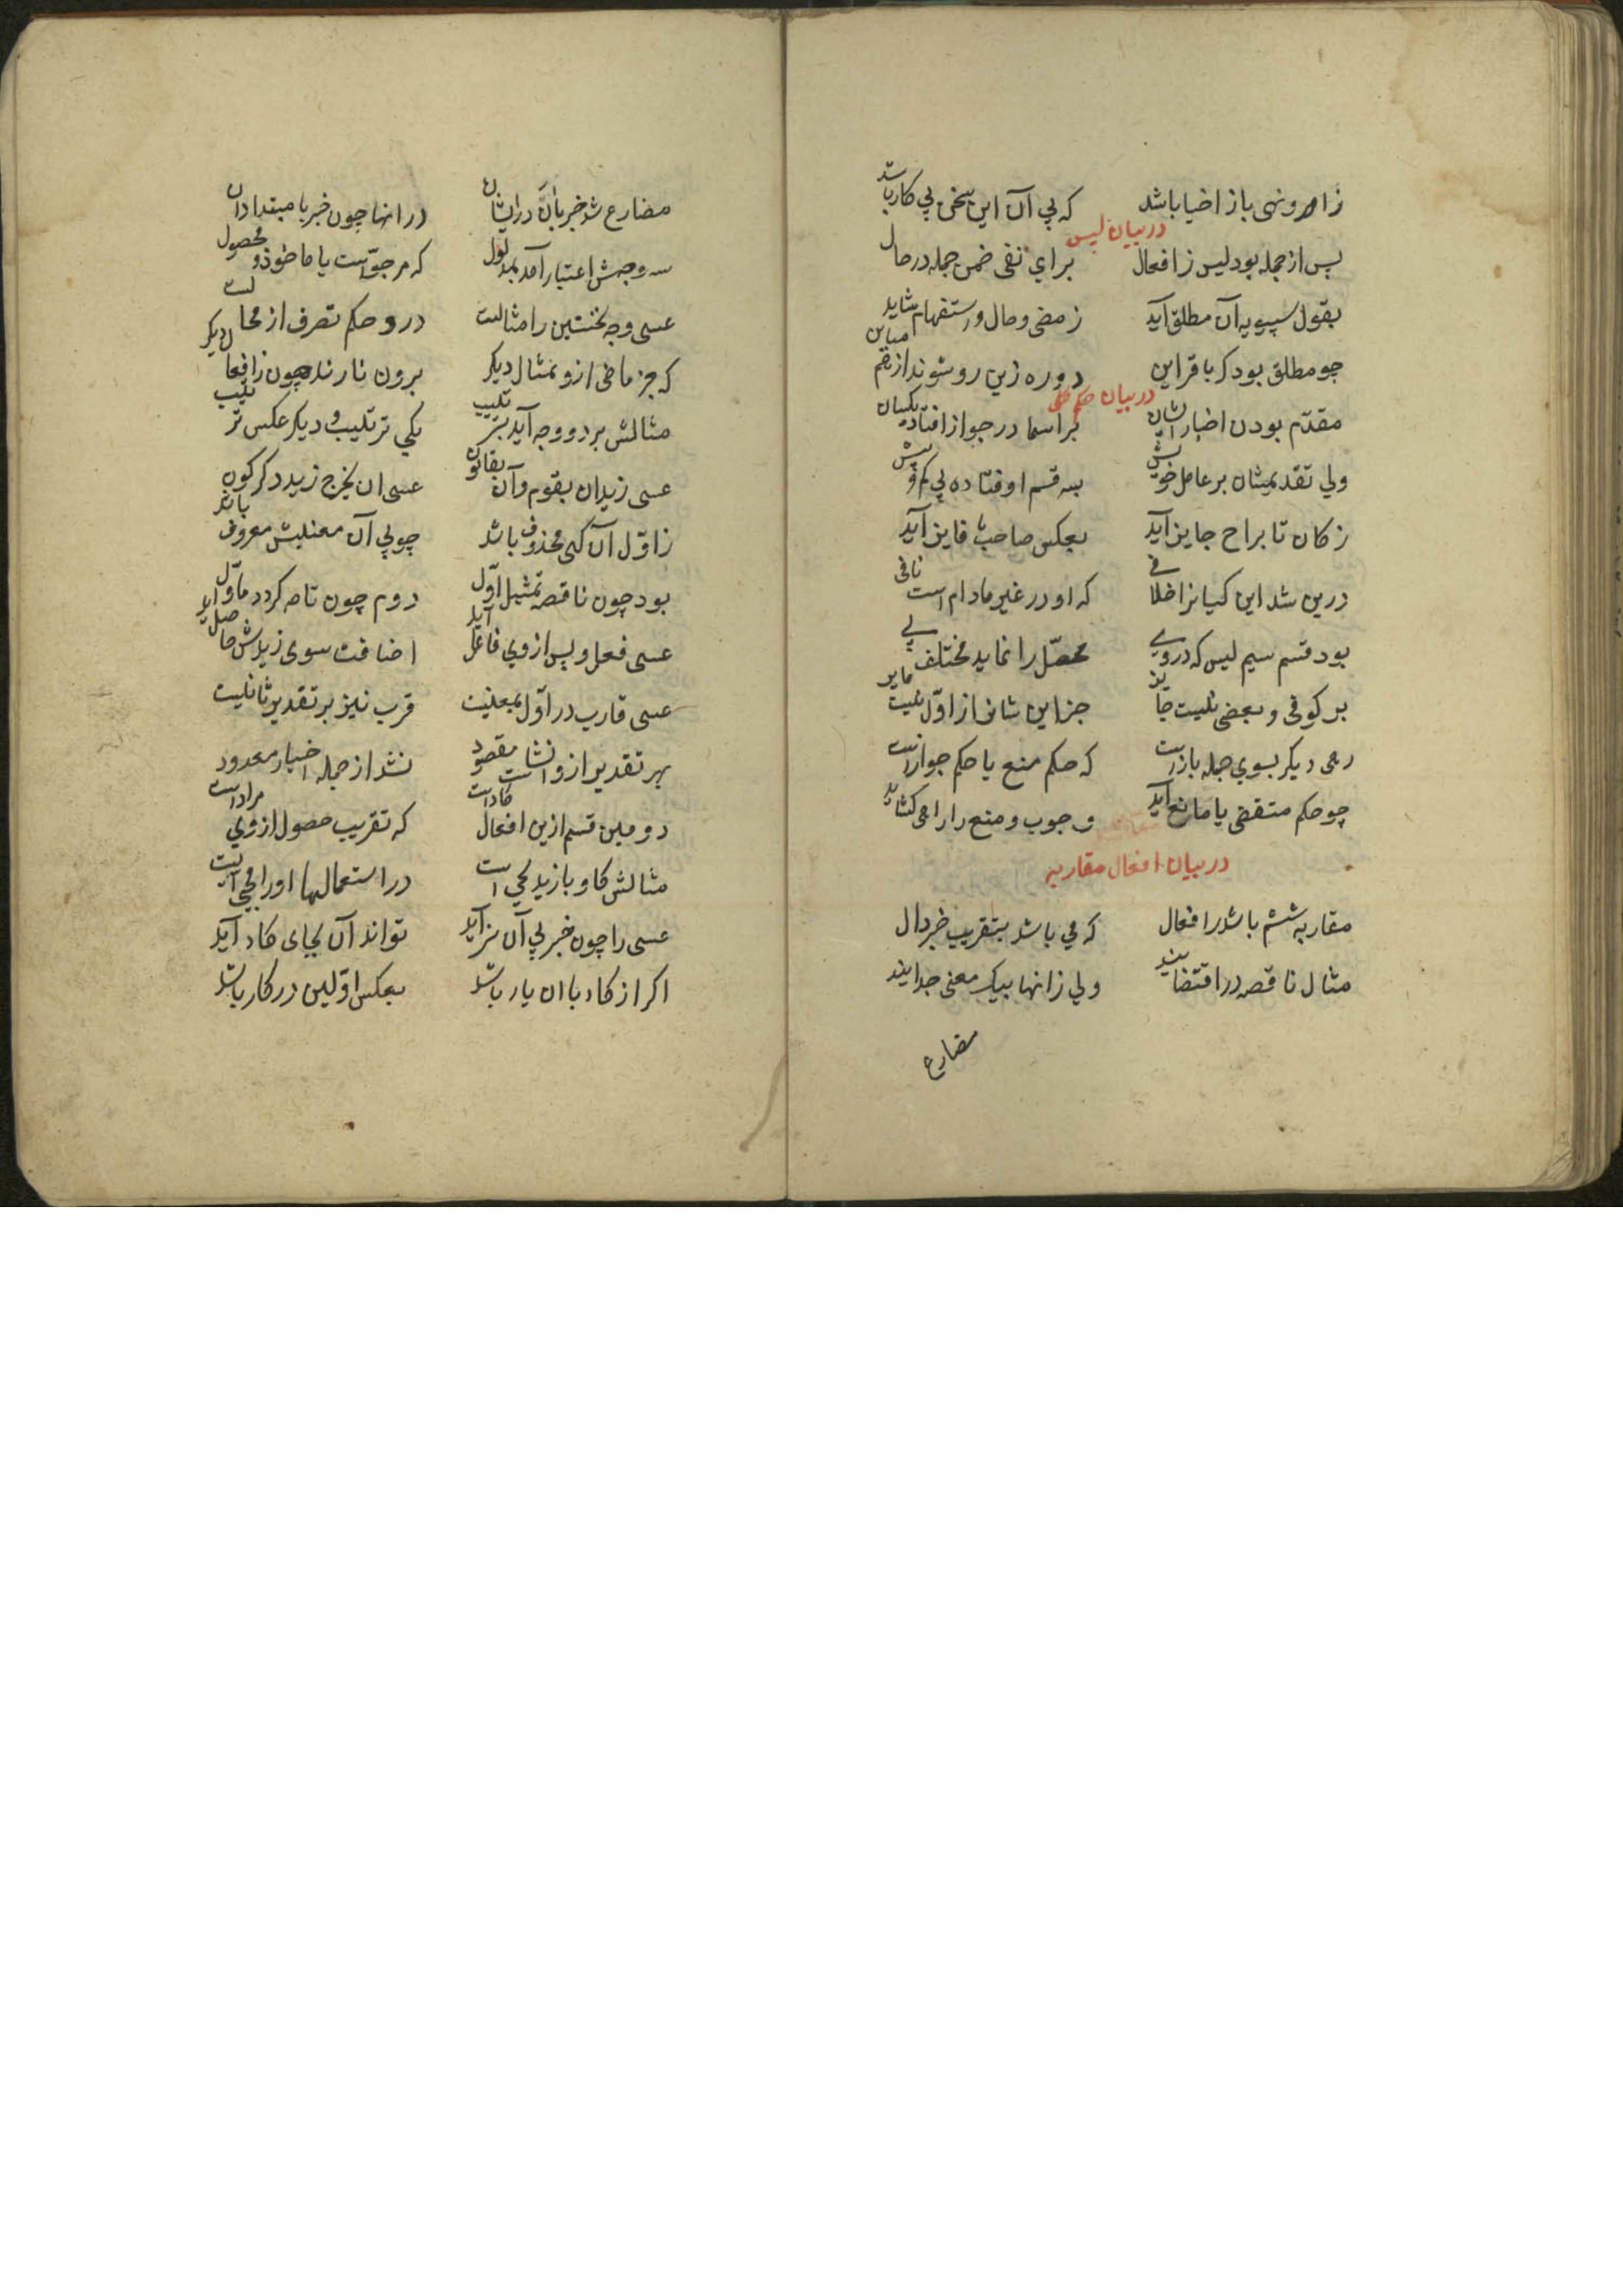 زامر ونهی باز اخبار باشد که پی آن این سخن بی کار باشد
در بیان لیس
پس از جمله بود لیس ز افعال برای نفی ضمن جمله در حال
بقول سیبویه آن مطلق آید ز مضی و حال و استفهام شاید
چو مطلق بود کر با قراین دو ره زین رو شوند از هم مباین
در بیان حکم
مقدم بودن اخبار ایشان بر اسما در جواز افتاد یکسان
ولی تقدیمشان بر عامل خویش بسه قسم اوفتاده بی کم و بیش
ز کان تا براح جایز آید بعکس صاحب ما فایز آید
درین شد ابن کیسانرا خلافی که او در غیر مادام است نافی
بود قسم سیم لیس که در وی محصل را نماید مختلف پی
بر کوفی و بعضی نیست جایز جز این شان از اول نیست مایز
رهی دیگر بسوی جمله بازاست که حکم منع یا حکم جوازاست
چو حکم مقتضی یا مانع آید وجوب و منع را راهی کشاید
در بیان افعال مقاربه
مقاربه ششم باشد ز افعال که می باشد بتقریب خبر دال
مثال ناقصه در اقتضایند ولی زانها بیک معنی جدایند
مضارع
مضارع شد خبر بان در ایشان در انها چون خبر با مبتدا دان
سه وجهش اعتبار آمد بمدلول که مرجو است یا ماخوذ و محصول
عسی وجه نخستین را مثالست درو حکم تصرف از محالست
که جز ماضی ازو تمثال دیکر برون نارند چون ز افعال دیکر
مثالش بر دو وجه آید بترتیب یکی ترتیب و دیکر عکس ترتیب
عسی زید ان یقوم و آن بقانون عسی ان یخرج زید دکرکون
ز اول آن کهی محذوف باشد چو بی آن معنیش معروف باشد
بود چون ناقصه تمثیل اول دوم چون تامه کردد ماول
عسی فعل و پس از وی فاعل آید اضافت سوی زیدش حاصل آید
عسی قارب در اول بمعنیست قرب نیز بر تقدیر ثانیست
بهر تقدیر ازو انشاست مقصود نشد از جمله اخبار معدود
دومین قسم ازین افعال کاداست که تقریب حصول از وی مراداست
مثالش کاد با زید یجی است در استعمالها او را مجی است
عسی را چون خبر بی آن سزاید تواند آن بجای کاد آید
اکر از کاد با ان یار باشد بعکس اولین در کار باشد